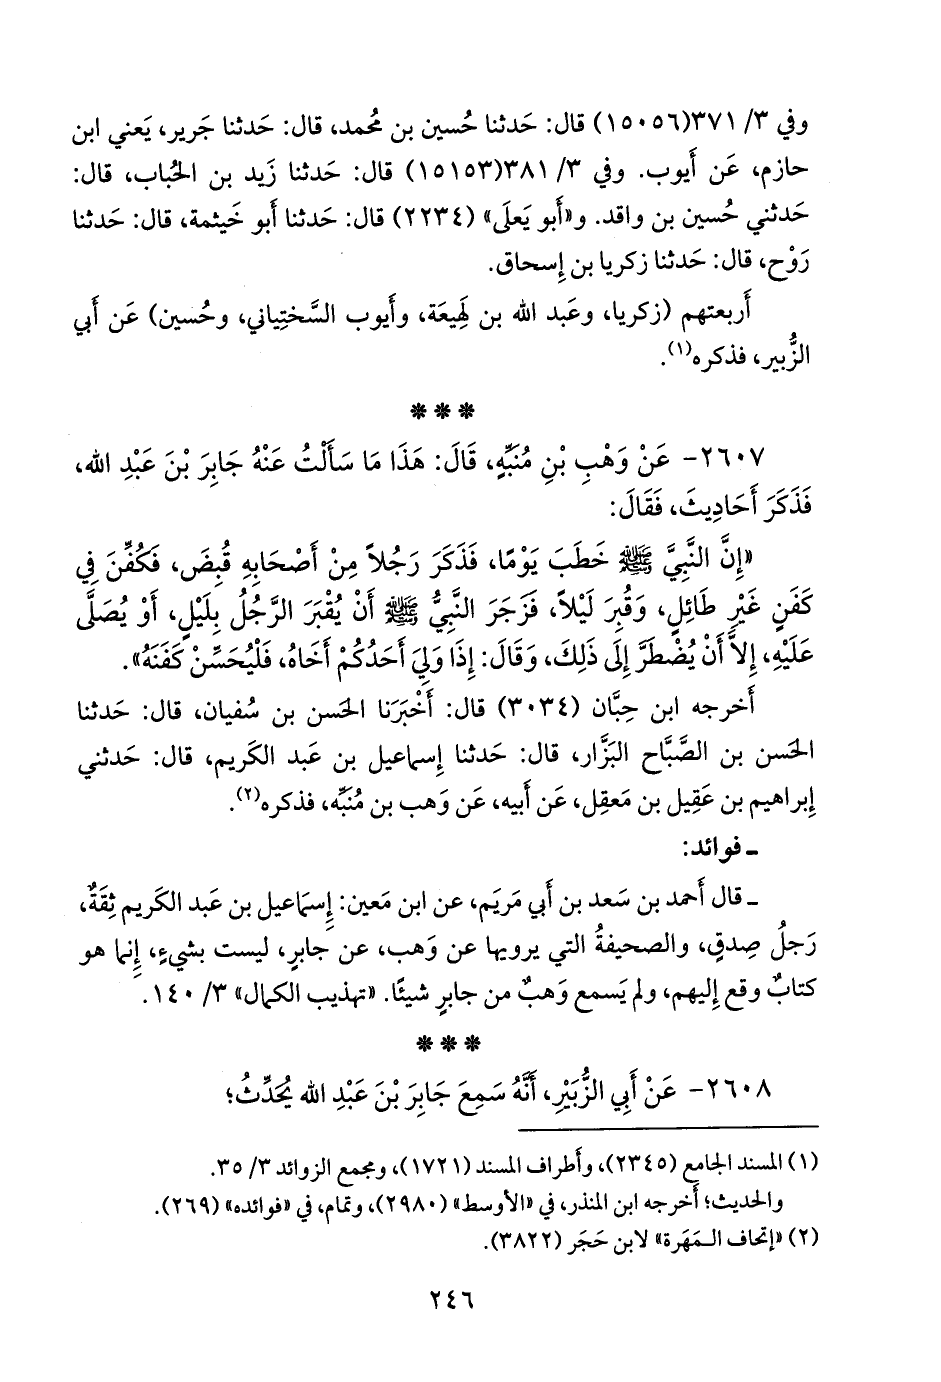 وفي ٣/ ٣٧١(١٥٠٥٦) قال: حَدثنا حُسين بن مُحمد، قال: حَدثنا جَرير، يَعني ابن
حازم، عَن أَيوب. وفي ٣/ ٣٨١(١٥١٥٣) قال: حَدثنا زَيد بن الحُباب، قال:
حَدثني حُسين بن واقد. و«أَبو يَعلَى» (٢٢٣٤) قال: حَدثنا أَبو خَيثمة، قال: حَدثنا
رَوْح، قال: حَدثنا زكريا بن إِسحاق.
أَربعتهم (زكريا، وعَبد الله بن لَهِيعَة، وأَيوب السَّختِياني، وحُسين) عَن أَبي
الزُّبير، فذكره(١).
***
٢٦٠٧- عَنْ وَهْبِ بْنِ مُنَبِّهٍ، قَالَ: هَذَا مَا سَأَلْتُ عَنْهُ جَابِرَ بْنَ عَبْدِ الله،
فَذَكَرَ أَحَادِيثَ، فَقَالَ:
«إِنَّ النَّبِيَّ ﷺ خَطَبَ يَوْمًا، فَذَكَرَ رَجُلاً مِنْ أَصْحَابِهِ قُبِضَ، فَكُفِّنَ فِي
كَفَنٍ غَيْرِ طَائِلٍ، وَقُبِرَ لَيْلاً، فَزَجَرَ النَّبِيُّ ﷺ أَنْ يُقْبَرَ الرَّجُلُ بِلَيْلٍ، أَوْ يُصَلَّى
عَلَيْهِ، إِلاَّ أَنْ يُضْطَرَّ إِلَى ذَلِكَ، وَقَالَ: إِذَا وَلِيَ أَحَدُكُمْ أَخَاهُ، فَلْيُحَسِّنْ كَفَنَهُ».
أَخرجه ابن حِبَّان (٣٠٣٤) قال: أَخْبَرَنا الحَسن بن سُفيان، قال: حَدثنا
الحَسن بن الصَّبَّاح البَزَّار، قال: حَدثنا إِسماعيل بن عَبد الكَريم، قال: حَدثني
إِبراهيم بن عَقِيل بن مَعقِل، عَن أَبيه، عَن وَهب بن مُنَبِّه، فذكره(٢).
ـ فوائد:
ـ قال أَحمد بن سَعد بن أَبي مَريَم، عن ابن مَعين: إِسماعيل بن عَبد الكريم ثِقَةٌ،
رَجلُ صِدقٍ، والصحيفةُ التي يرويها عن وَهب، عن جابرٍ، ليست بشيءٍ، إِنما هو
كتابٌ وقع إِليهم، ولم يَسمع وَهبٌ من جابرٍ شيئًا. «تهذيب الكمال» ٣/ ١٤٠.
***
٢٦٠٨- عَنْ أَبِي الزُّبَيْرِ، أَنَّهُ سَمِعَ جَابِرَ بْنَ عَبْدِ الله يُحَدِّثُ؛
(١) المسند الجامع (٢٣٤٥)، وأَطراف المسند (١٧٢١)، ومجمع الزوائد ٣/ ٣٥.
والحديث؛ أَخرجه ابن المنذر، في «الأَوسط» (٢٩٨٠)، وتمام، في «فوائده» (٢٦٩).
(٢) «إِتحاف المَهَرة» لابن حَجَر (٣٨٢٢).
٢٤٦